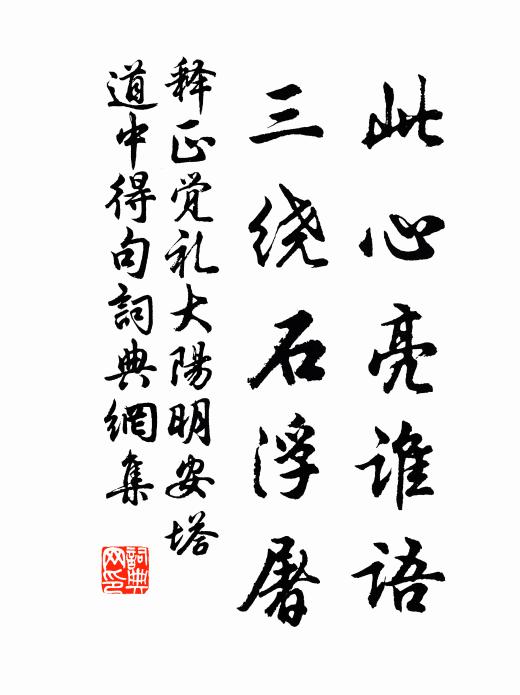 此心亮谁语
三绕石浮屠
释正觉礼大陽明安塔
道中得句詞典網集
詞典網印